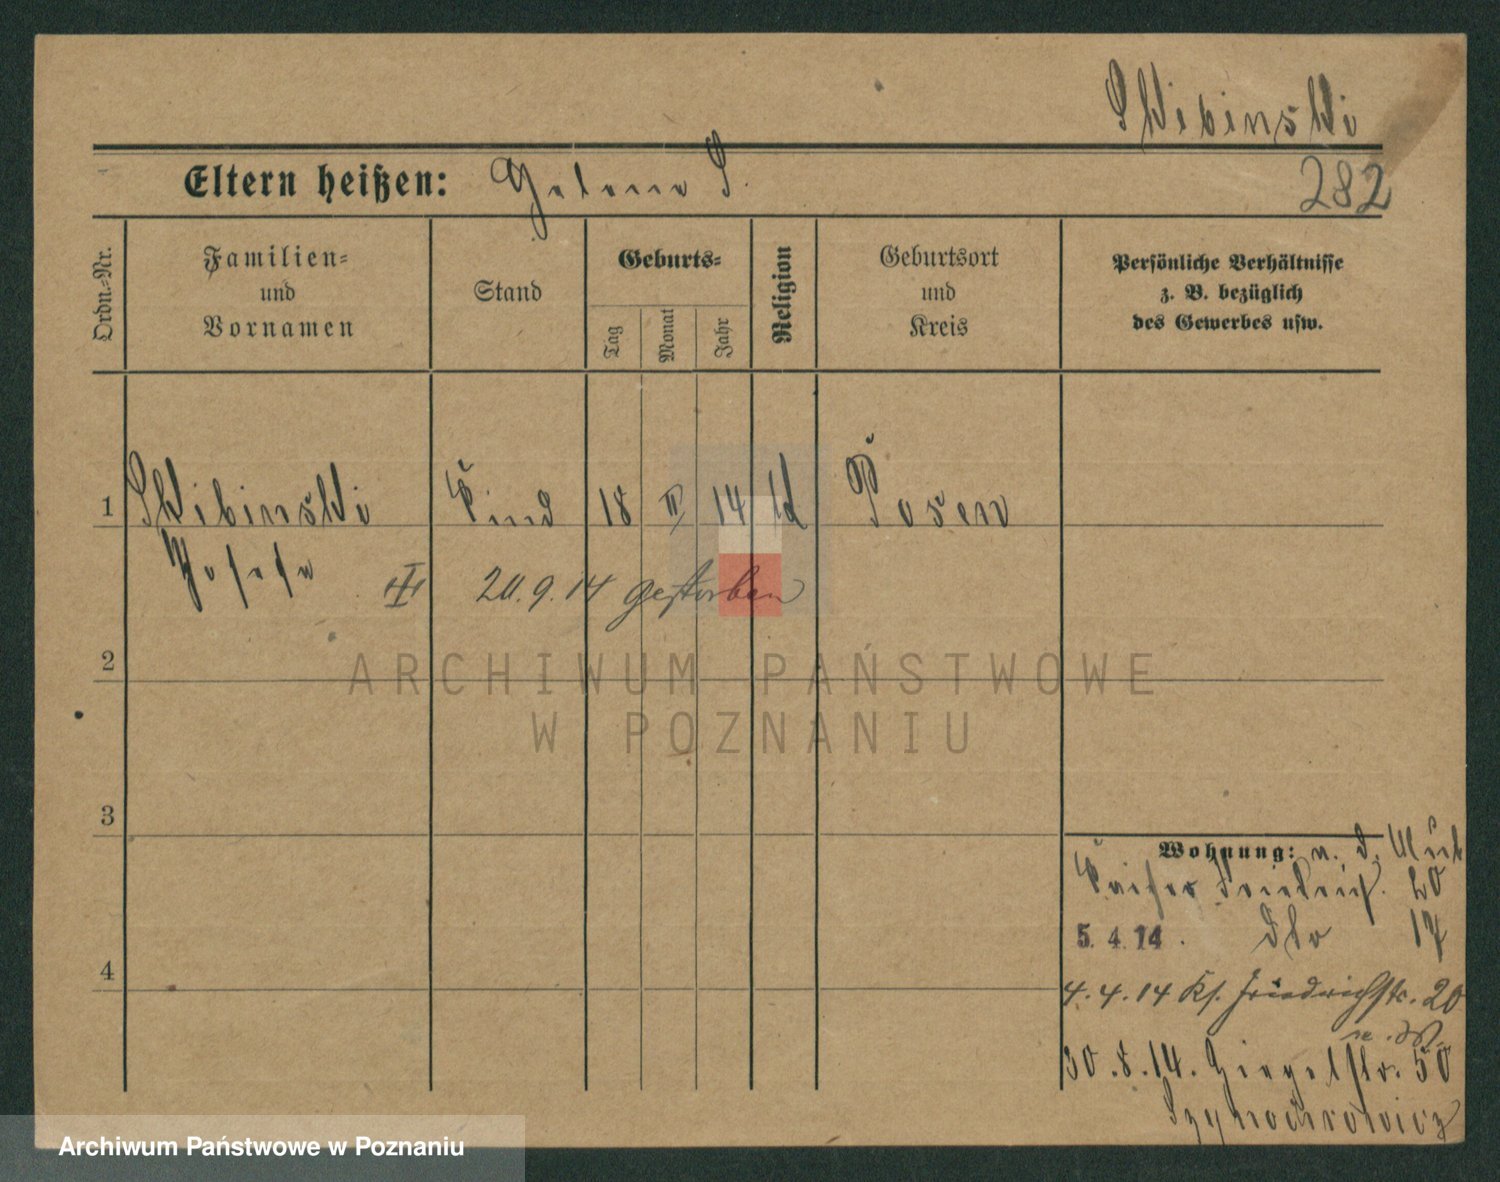 Skibinski
Eltern heißen: Helene S.
282
Ordn.-Nr.
Familien-
und
Vornamen
Stand
Geburts-
Tag
Monat
Jahr
Religion
Geburtsort
und
Kreis
Persönliche Verhältnisse
z. B. bezüglich
des Gewerbes usw.
1
Skibinski Kind 18 II 14 kt Posen
Josefa
20.9.14 gestorben
2
ARCHIWUM PAŃSTWOWE
W POZNANIU
3
Wohnung: n. d. Mut
Kaiser Friedrich. 20
5. 4. 14. Dto 17
4
4.4.14 Ks. Friedrichstr. 20
30.8.14. Ziegelstr. 50
Archiwum Państwowe w Poznaniu